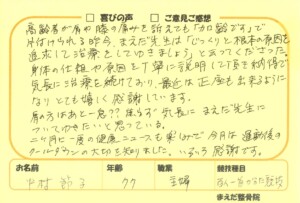 □喜びの声 □ご意見ご感想
高齢者が肩や膝の痛みを訴えても「加齢です」で
片付けられる昨今、まえだ先生は「じっくりと根本の原因を
追求して治療をしてゆきましょう」と云ってくださった。
身体の仕組や原因を丁寧に説明して頂き納得で
気長に治療を続けており、最近は正座も出来るように
なりとても嬉しく感謝しています。
肩の方はあと一息?? 焦らず気長に まえだ先生に
ついてゆきたいと思っている。
二ヶ月に一度の健康ニュースも楽しみで 今月は 運動後の
クールダウンの大切を知りました。いろいろ感謝です。
お名前 年齢 職業 競技種目
中村 77 主婦
まえだ整骨院